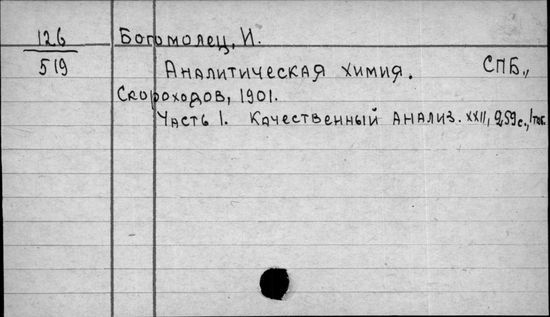 126
519
Богомолец, И.
Аналитическая химия. СПБ.,
Скороходов, 1901.
Часть 1. Качественный анализ. XXII, 259 с., 1 таб.